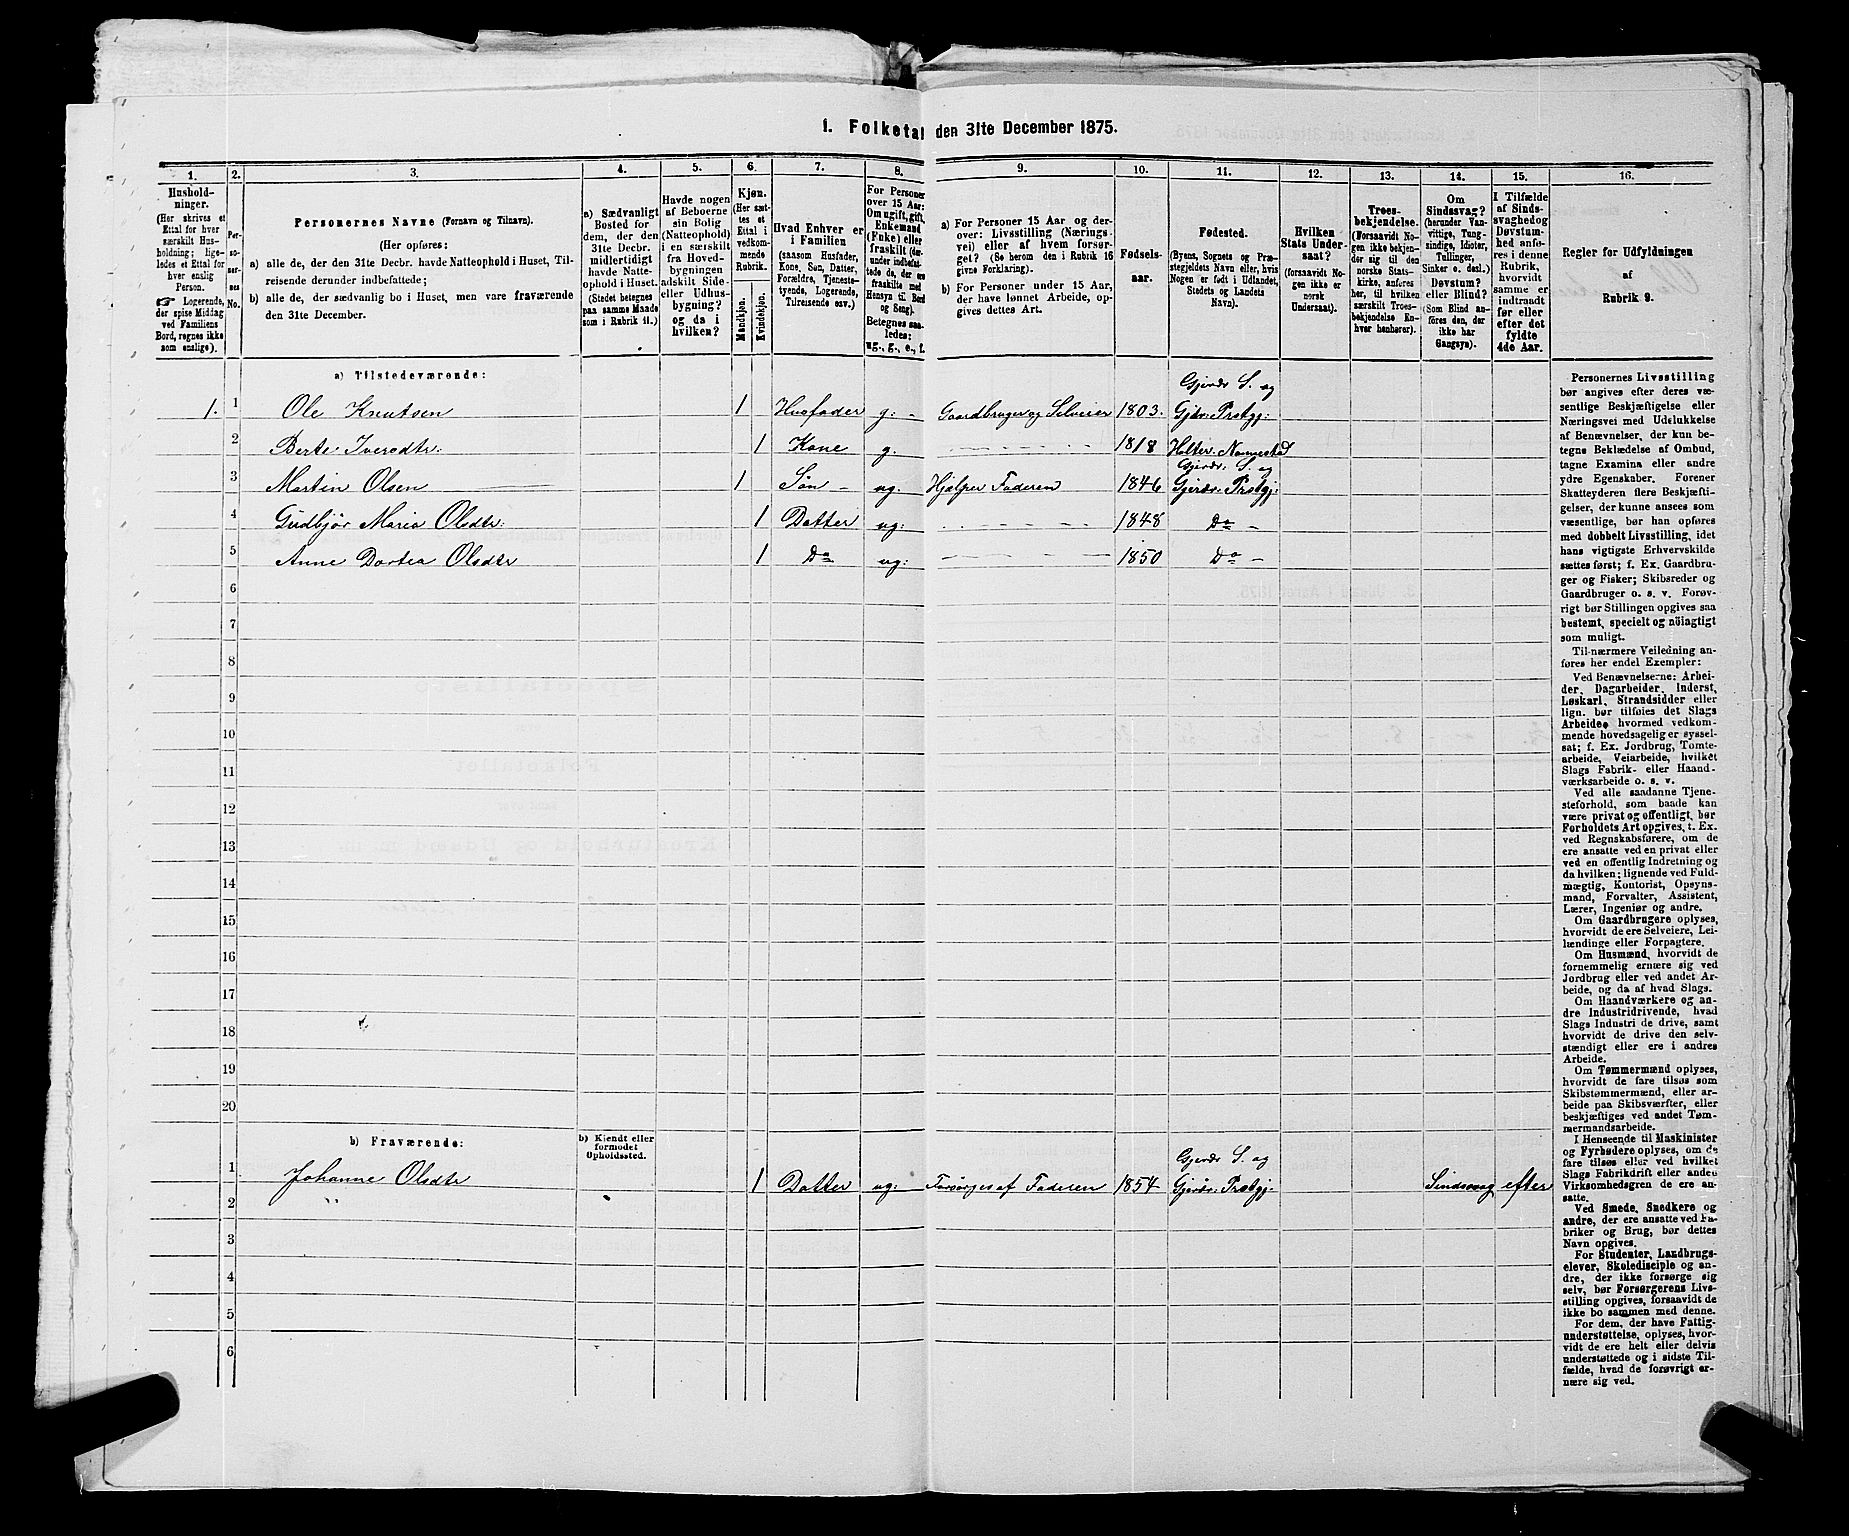 1. Folketal den 31te December 1875.
1.
2.
3.
4.
5.
6.
7.
8.
9.
10.
11.
12.
13.
14.
15.
16.
Hushold-
ninger.
(Her skrives et
Ettal for hver
særskilt Hus-
holdning; lige-
ledes et Ettal for
hver enslig
Person.
☞ Logerende,
der spise Middag
ved Familiens
Bord, regnes ikke
som enslige).
Per-
so-
ner-
nes
No.
Personernes Navne (Fornavn og Tilnavn).
(Her opføres:
a) alle de, der den 31te Decbr. havde Natteophold i Huset, Til-
reisende derunder indbefattede;
b) alle de, der sædvanlig bo i Huset, men vare fraværende
den 31te December.
a) Sædvanligt
Bosted for
dem, der den
31te Decbr.
midlertidigt
havde Natte-
ophold i Huset.
(Stedet betegnes
paa samme Maade
som i Rubrik 11.)
Havde nogen
af Beboerne
sin Bolig
(Natteophold)
i en særskilt
fra Hoved-
bygningen
adskilt Side-
eller Udhus-
bygning?
og da i
hvilken?
Kjøn.
(Her sæt-
tes et
Ettal i
vedkom-
mende
Rubrik.
Mandkjøn.
Kvindekjøn.
Hvad Enhver er
i Familien
(saasom Husfader,
Kone, Søn, Datter,
Forældre, Tjeneste-
tyende, Logerende,
Tilreisende osv.)
For Personer
over 15 Aar:
Om ugift, gift,
Enkemand
(Enke) eller
fraskilt (der-
under indbefat-
tede de, der ere
fraskilte med
Hensyn til Bord
og Seng).
Betegnes saa-
ledes:
ug., g., e., f.
a) For Personer 15 Aar og der-
over: Livsstilling (Nærings-
vei) eller af hvem forsør-
get? (Se herom den i Rubrik 16
givne Forklaring).
b) For Personer under 15 Aar,
der have lønnet Arbeide, op-
gives dettes Art.
Fødsels-
aar.
Fødested.
(Byens, Sognets og Præ-
stegjeldets Navn eller, hvis
Nogen er født i Udlandet,
Stedets og Landets
Navn).
Hvilken
Stats Under-
saat?
(forsaavidt No-
gen ikke er
norsk
Undersaat).
Troes-
bekjendelse.
(Forsaavidt No-
gen ikke bekjen-
der sig til den
norske Stats-
kirke, anføres
her, til hvilken
særskilt Troes-
bekjendelse En-
hver henhører).
Om
Sindssvag?
(herunder Van-
vittige, Tung-
sindige, Idioter,
Tullinger,
Sinker o. desl.)
Døvstum?
eller Blind?
(Som Blind an-
føres den, der
ikke har
Gangsyn).
I Tilfælde
af Sinds-
svaghed og
Døvstum-
hed anfø-
res i denne
Rubrik,
hvorvidt
samme er
indtraadt
før eller
efter det
fyldte
4de Aar.
Regler for Udfyldningen
af
Rubrik 9.
a) Tilstedeværende:
Gjerdr S. og
1. 1 Ole Knutsen 1 Husfader g: - Gaardbruger og Selveier 1803. Gjdr: Prstgj:
2 Berte Iversdtr: 1 Kone g. 1818 Holter. Nannestad
Gjerdr: S. og
3 Martin Olsen 1 Søn - ug. Hjelper Faderen 1846 Gjerdr: Prstgj:
4 Gudbjør Maria Olsdtr: 1 Datter ug: 1848 Do -
5 Anne Dortea Olsdtr 1 Do ug: 1850 Do -
6
7
8
9
10
11
12
13
14
15
16
17
18
19
20
b) Fraværende:
b) Kjendt eller
formodet
Opholdssted.
Gjerdr S. og
1 Johanne Olsdtr 1 Datter ug: Forsørges af Faderen 1854 Gjerdr: Prstgj: Sindssvag efter
2
3
4
5
6
Personernes Livsstilling
bør angives efter deres væ-
sentlige Beskjæftigelse eller
Næringsvei med Udelukkelse
af Benævnelser, der kun be-
tegne Beklædelse af Ombud,
tagne Examina eller andre
ydre Egenskaber. Forener
Skatteyderen flere Beskjæfti-
gelser, der kunne ansees som
væsentlige, bør han opføres
med dobbelt Livsstilling, idet
hans vigtigste Erhvervskilde
sættes først; f. Ex. Gaardbru-
ger og Fisker; Skibsreder og
Gaardbruger o. s. v. Forøv-
rigt bør Stillingen opgives saa
bestemt, specielt og nöiagtigt
som muligt.
Til nærmere Veiledning an-
føres her endel Exempler:
Ved Benævnelserne: Arbei-
der, Dagarbeider, Inderst,
Løskarl, Strandsidder eller
lign. bør tilføies det Slags
Arbeide, hvormed vedkom-
mende hovedsagelig er syssel-
sat; f. Ex. Jordbrug, Tomte-
arbeide, Veiarbeide, hvilket
Slags Fabrik- eller Haand-
værksarbeide o. s. v.
Ved alle saadanne Tjene-
steforhold, som baade kan
være privat og offentligt, bør
Forholdets Art opgives, t. Ex.
ved Regnskabsførere, om de
ere ansatte ved en privat eller
ved en offentlig Indretning og
da hvilken; lignende ved Fuld-
mægtig, Kontorist, Opsyns-
mand, Forvalter, Assistent,
Lærer, Ingeniør og andre.
Om Gaardbrugere oplyses,
hvorvidt de ere Selveiere, Lei-
lændinge eller Forpagtere.
Om Husmænd, hvorvidt de
fornemmelig ernære sig ved
Jordbrug eller ved andet Ar-
beide, og da af hvad Slags.
Om Haandværkere og an-
dre Industridrivende, hvad
Slags Industri de drive, samt
hvorvidt de drive den selv-
stændigt eller ere i andres
Arbeide.
Om Tømmermænd oplyses,
hvorvidt de fare tilsøs som
Skibstømmermænd, eller ar-
beide paa Skibsværfter, eller
beskjæftiges ved andet Tøm-
mermandsarbeide.
I Henseende til Maskinister
og Fyrbødere oplyses, om de
fare tilsøs eller ved hvilket
Slags Fabrikdrift eller anden
Virksomhedsgren de ere an-
satte.
Ved Smede, Snedkere og
andre, der ere ansatte ved Fa-
briker og Brug, bør dettes
Navn opgives.
For Studenter, Landbrugs-
elever, Skoledisciple og an-
dre, der ikke forsørge sig
selv, bør Forsørgerens Livs-
stilling opgives, forsaavidt de
ikke bo sammen med denne.
For dem, der have Fattig-
understøttelse, oplyses, hvor-
vidt de ere helt eller delvis
understøttede og i sidste Til-
fælde, hvad de forøvrigt er-
nære sig ved.